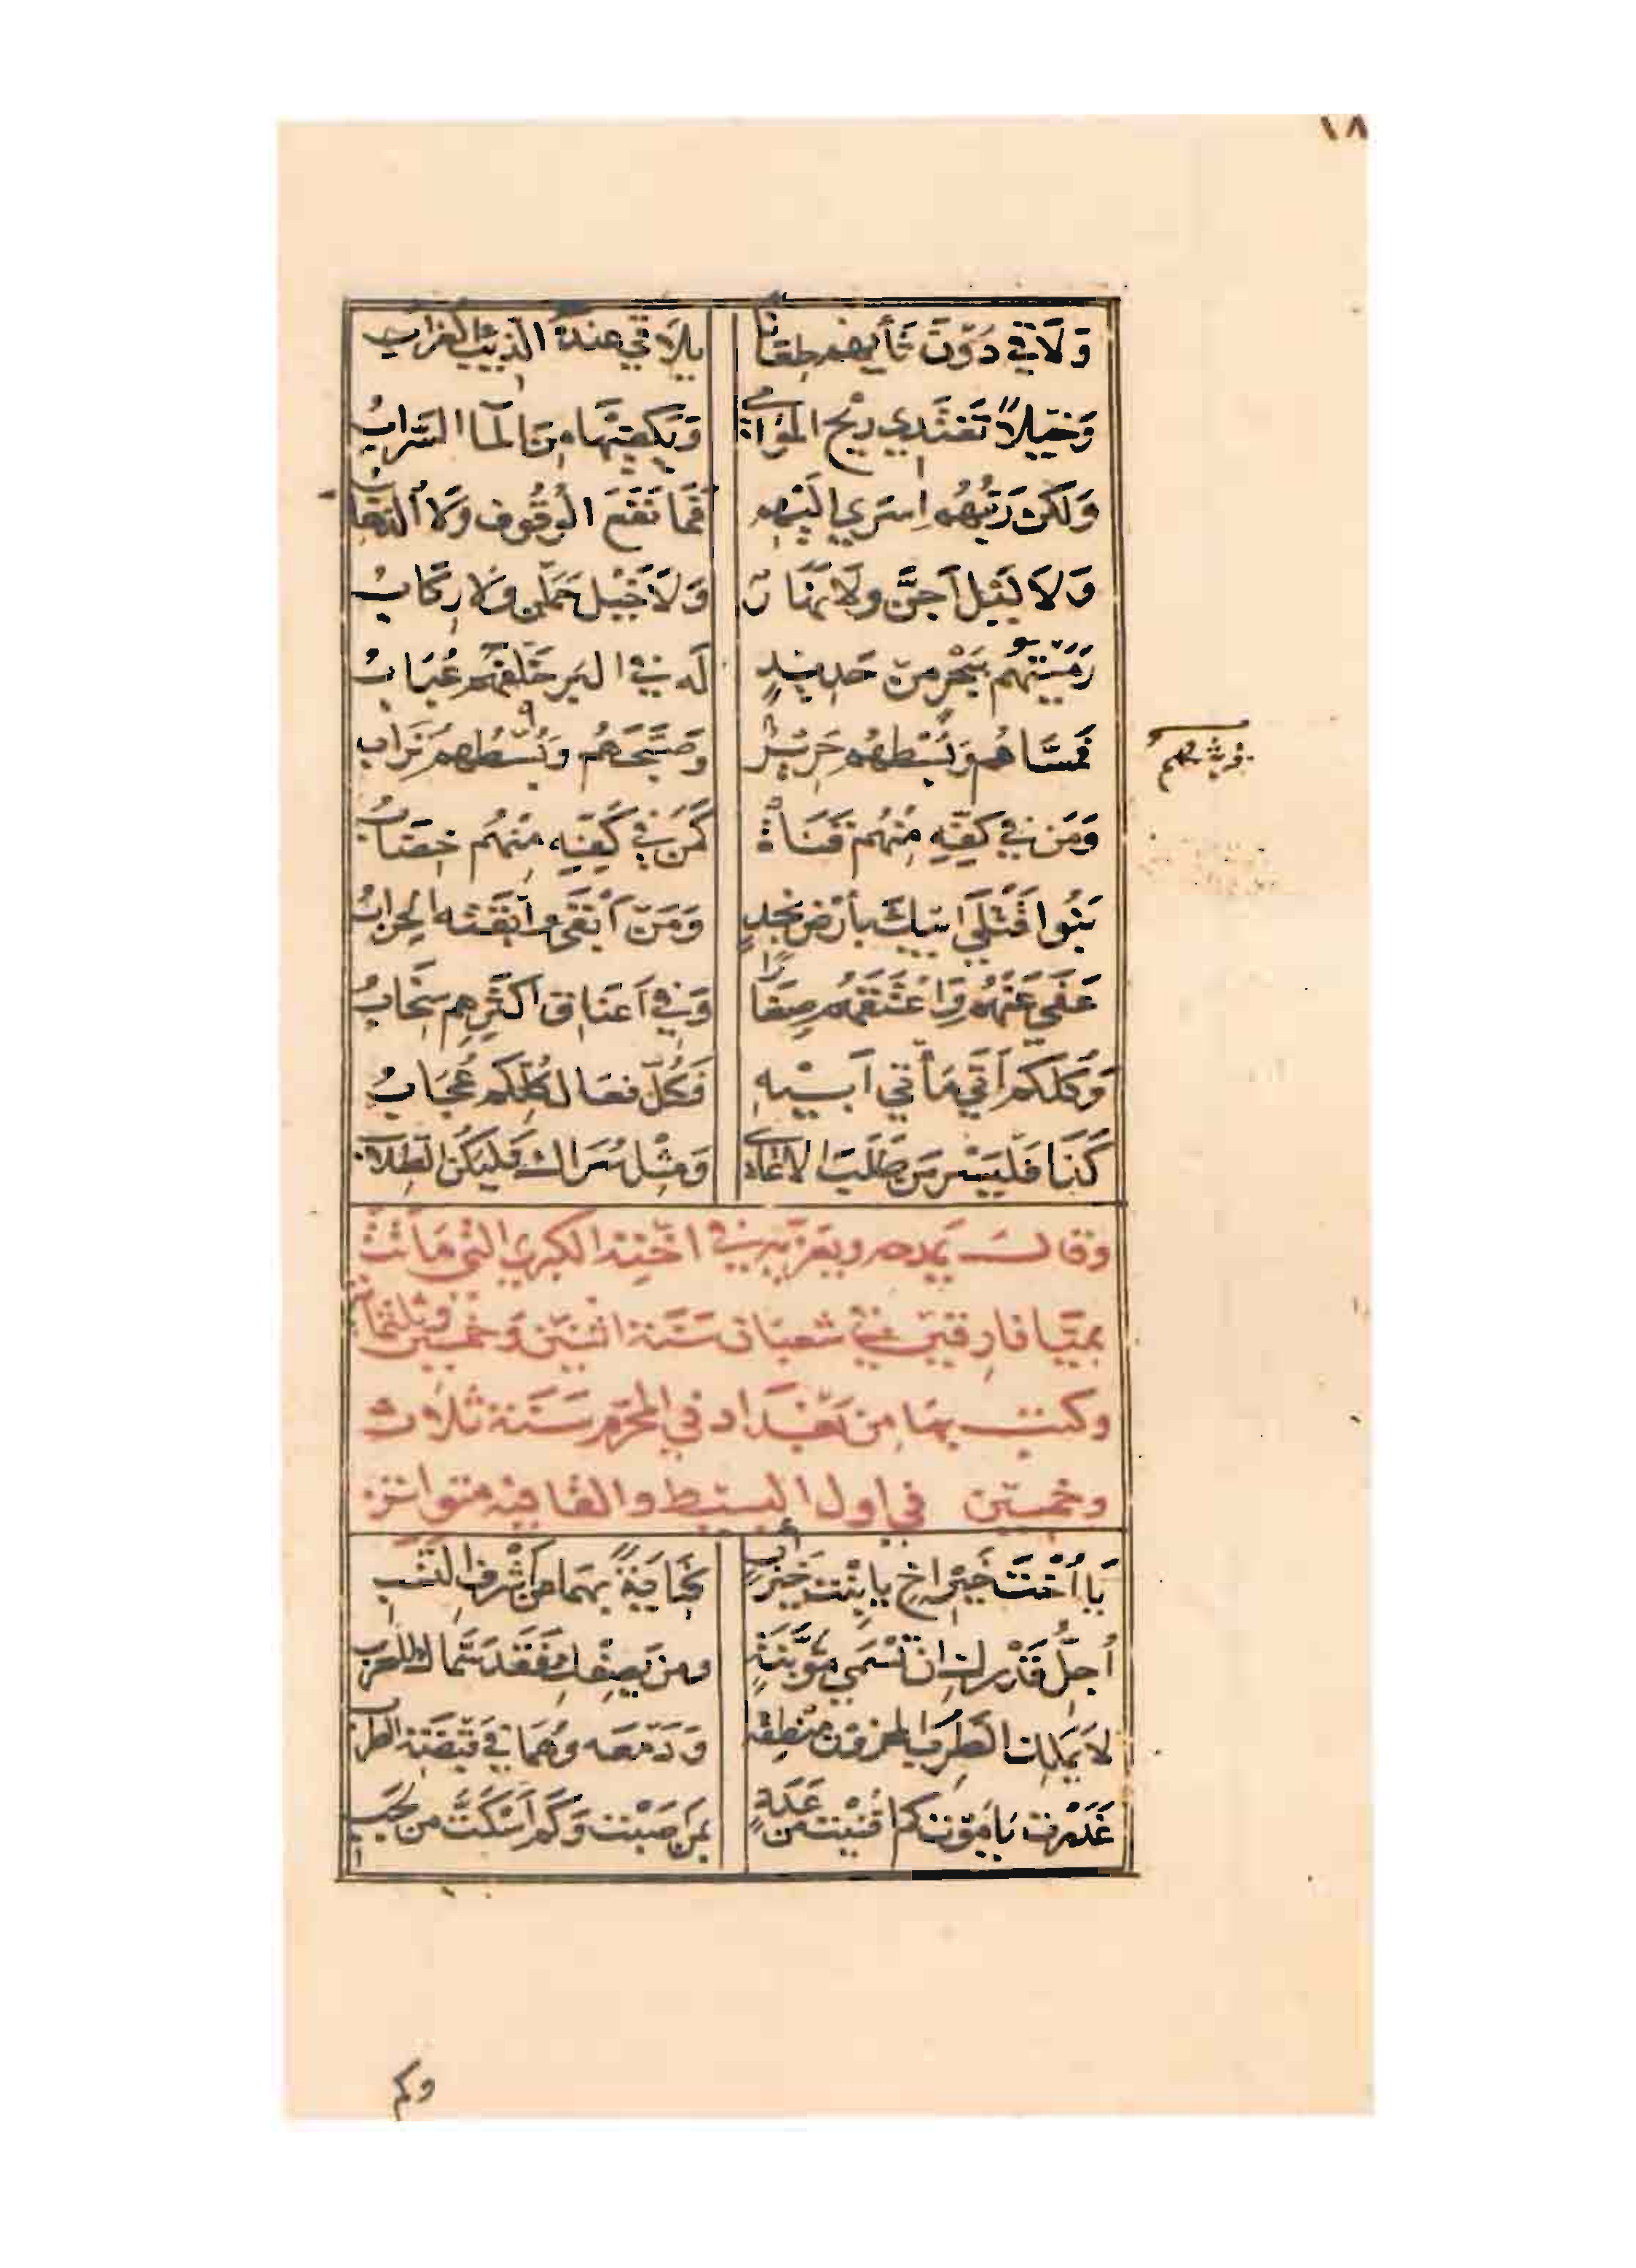 ١٨
وَلَاقَى دُونَ ثَأْيِهِم طِعَانًا يُلَاقِي عِنْدَهُ الذِّيبَ الغُرَابُ
وَخَيْلًا تَغْتَذِي رِيحَ المَوَامِي وَتَكْفِيهَا مِنَ المَاءِ السَّرَابُ
وَلَكِنْ رَبُّهُم اسْرَى إلَيْهِم فَمَا نَفَعَ الوُقُوف وَلَا الذَّهَابُ
وَلَا لَيْل أَجَنَّ وَلَا نَهَارٌ وَلَا خَيْل حَمَلْنَ وَلَا رِكَابُ
رَمَيْتَهُم بِبَحْرٍ مِن حَدِيدٍ لَه في البَر خَلْفَهُم عُبَابُ
فَمَسَّاهُم وَبُسْطُهُم حَرِيرٌ وَصَبَّحَهُم وَبُسْطُهُم تُرَابُ
وفرشهم
وَمَن في كَفِّهِ مِنْهُم قَنَاةٌ كَمَن في كَفِّهِ مِنْهُم خِضَابُ
بَنُوا قَتْلَى أَبِيكَ بِأَرْضِ نَجْدٍ وَمَن أَبْقَى وَأَبْقَتْه الحِرَابُ
عَفَى عَنْهُم وَاَعْتَقَهُم صِغَارًا وَفي اَعْنَاق اَكْثَرِهِم سِخَابُ
وَكُلّكم أَتَى مَأْتَى أَبِيْهِ فَكُلّ فِعَال كُلّكم عُجَابُ
كَذَا فَلْيَسْر مَن طَلَبَ الأعَادِي وَمِثْلَ سُرَاك فَلْيَكُن الطِّلَابُ
وقال يمدحه ويعزيه في اخته الكبرى التي مَاتَت
بميَّافارقين في شعبان سَنَة اثنين وَخمسين وثلثمائة
وكتب بها مِن بَغْدَاد في المحرم سَنَة ثلاث
وخمسين في اول البسيط والقافيه متواتر
يَا اُخْتَ خَيْرِ اخٍ يا بِنْتَ خَيْرِ أبٍ كِنَايَةً بِهِمَا عَن أَشْرَفِ النَّسَبِ
اُجِلُّ قَدْرَكِ ان تُسْمَي مُؤَبَّنَةً ومن يَصِفْكِ فَقَد سَمَّاكِ للعَرَبِ
لا يَملِك الطَّرِبُ المحزون مَنْطِقَه وَدَمْعَه وهُمَا في قَبْضَةِ الطَّرَبِ
غَدَرْتَ يَا مَوْتُ كَم اَفْنَيْتَ مِن عَدَدٍ بِمَن اَصَبْتَ وَكَم أَسْكَتَّ مِن لَجَبِ
وكم